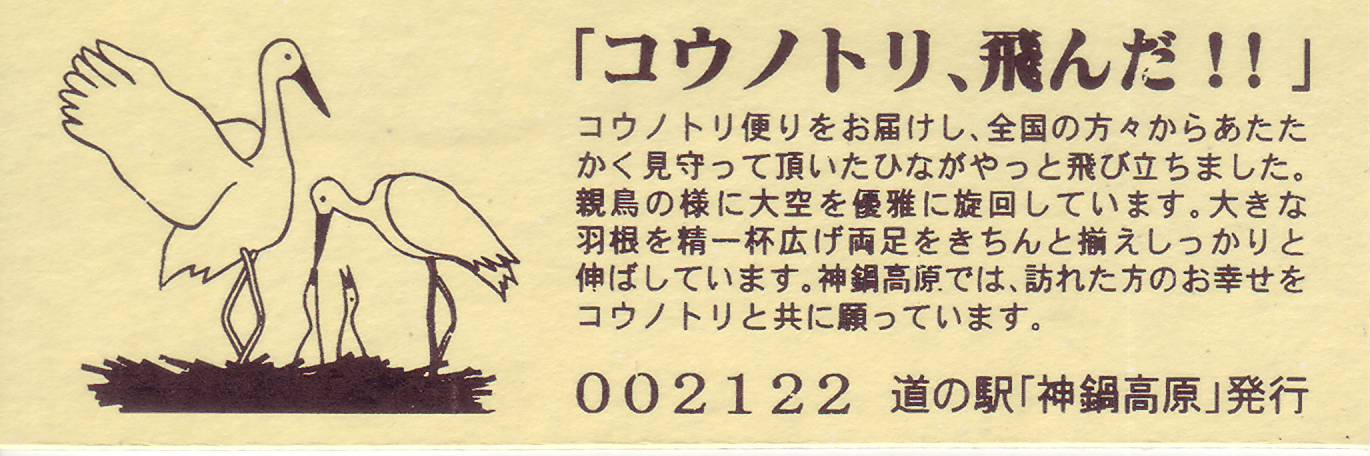 「コウノトリ、飛んだ！！」
コウノトリ便りをお届けし、全国の方々からあたた
かく見守って頂いたひながやっと飛び立ちました。
親鳥の様に大空を優雅に旋回しています。大きな
羽根を精一杯広げ両足をきちんと揃えしっかりと
伸ばしています。神鍋高原では、訪れた方のお幸せを
コウノトリと共に願っています。
002122 道の駅「神鍋高原」発行